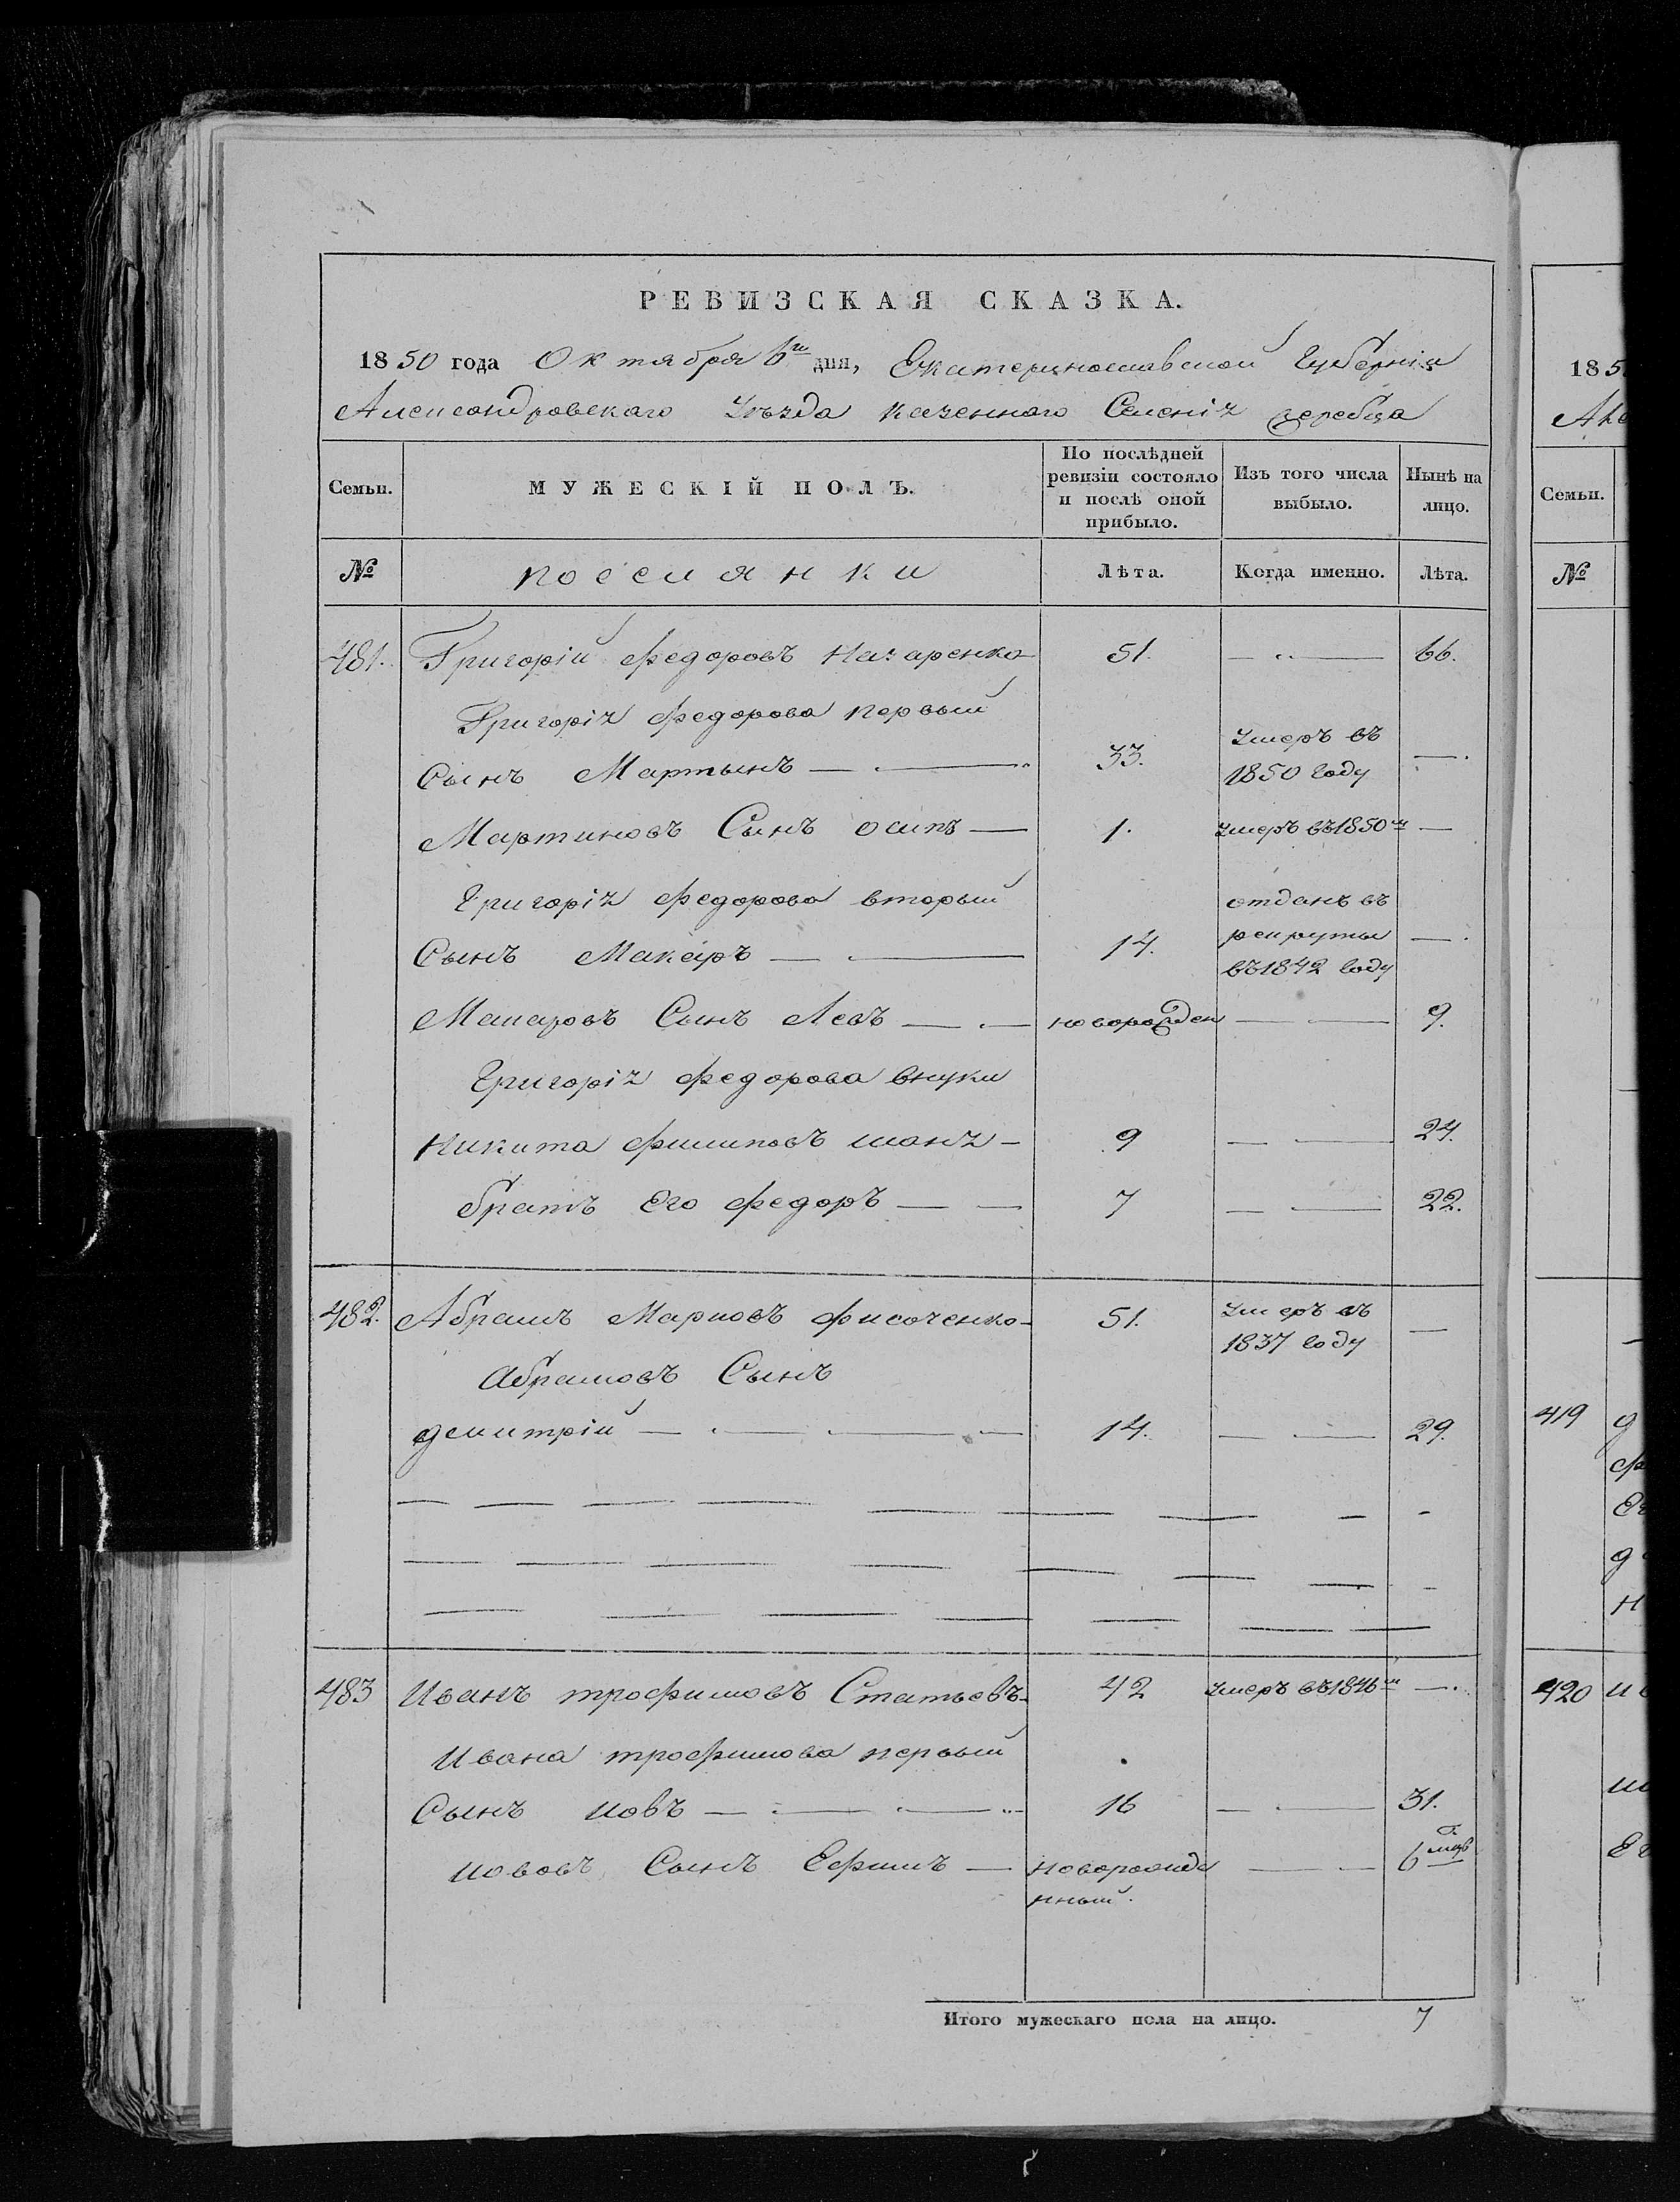 РЕВИЗСКАЯ СКАЗКА.
1850 года Октября 6го дня, Екатеринославской Губерніи
Александровскаго Уѣзда казеннаго Селенія Жеребца
Семьи.
МУЖЕСКІЙ ПОЛЪ.
По послѣдней ревизіи состояло и послѣ оной прибыло.
Изъ того числа выбыло.
Нынѣ на лицо.
№
Лѣта.
Когда именно.
Лѣта.
481. Григорій федоровъ Назаренко 51. 66.
Григорія федорова первый
Сынъ Мартынъ 33. умеръ въ 1850 году
Мартиновъ Сынъ осипъ 1. умеръ въ 1850 г
Григорія федорова вторый
Сынъ Макаръ 14. отданъ въ рекруты въ 1842 году
Макаровъ Сынъ Левъ новорожден 9.
Григорія федорова внуки
Никита филиповъ 9 24.
братъ Его федоръ 7 22.
482. Абрамъ Марковъ 51. умеръ въ 1837 году
Абрамовъ Сынъ
дмитрій 14. 29.
483 Иванъ трофимовъ Статьевъ 42 умеръ въ 1846 м
Ивана трофимова первый
Сынъ иовъ 16 31.
иововъ Сынъ Ефимъ новорожде нный. 6 мцв
Итого мужескаго пола на лицо. 7
185
Але
Семьи.
№
419
420